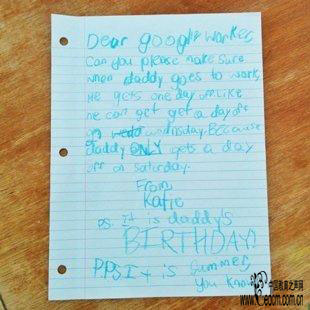 Dear google worker,
Can you please make sure
when daddy goes to work,
He gets one day off. Like
He can get get a day off
on wednesday. Because
daddy ONLY gets a day
off on saturday.
From
Katie
P.S. It is daddy's
BIRTHDAY!
P.P.S. It is summer,
you know
中国教育之声网